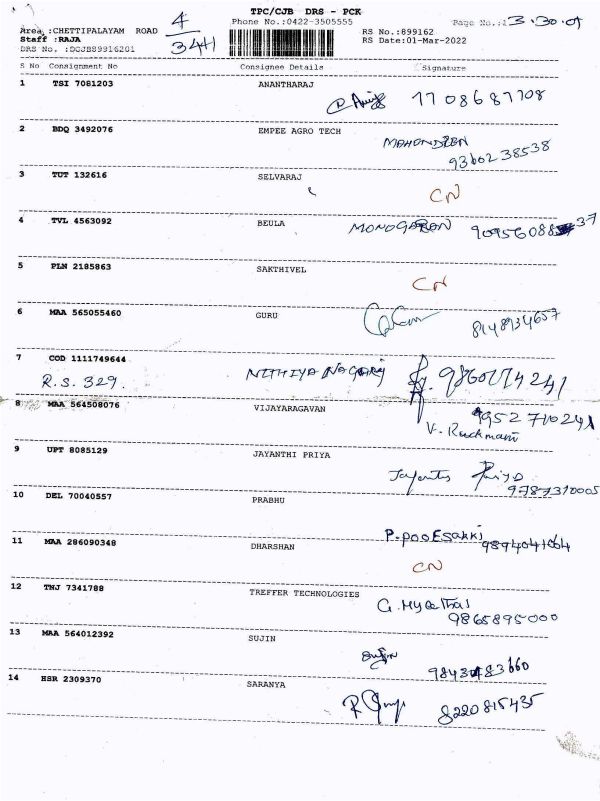 TPC/CJB DRS - PCK
Area :CHETTIPALAYAM ROAD 4 Phone No.:0422-3505555 Page No.:1
Staff :RAJA 3441 RS No.:899162
DRS No. :DCJB89916201 RS Date:01-Mar-2022
S No Consignment No Consignee Details Signature
1 TSI 7081203 ANANTHARAJ
7708687708
2 BDQ 3492076 EMPEE AGRO TECH
9360238538
3 TUT 132616 SELVARAJ
CN
4 TVL 4563092 BEULA MONOGARAN
5 PLN 2185863 SAKTHIVEL
CN
6 MAA 565055460 GURU
8148934657
7 COD 1111749644 NITHIYA NAGARAJ
R.S. 329.
8 MAA 564508076 VIJAYARAGAVAN 9952710241
V. Rukmani
9 UPT 8085129 JAYANTHI PRIYA
Jayanthi Priya
9787310005
10 DEL 70040557 PRABHU
P. pooEsakki
11 MAA 286090348 DHARSHAN
CN
12 TNJ 7341788 TREFFER TECHNOLOGIES
9865895000
13 MAA 564012392 SUJIN
14 HSR 2309370 SARANYA
8220815435